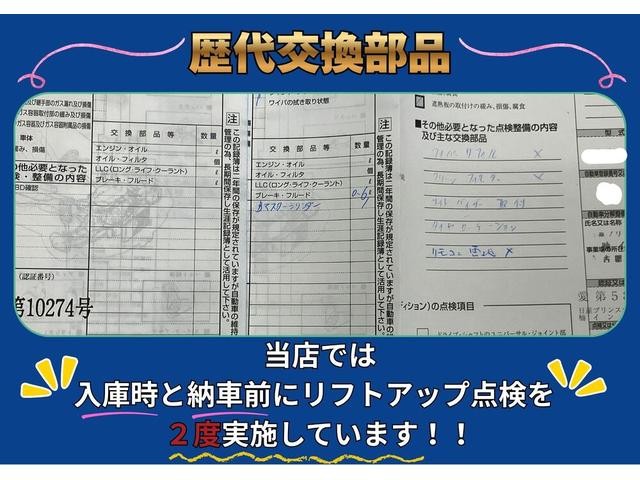 歴代交換部品
ワイパの拭き取り状態
遮熱板の取付けの緩み、損傷、腐食
交換部品等 数量
エンジン・オイル ℓ
オイル・フィルタ 個
LLC(ロング・ライフ・クーラント) ℓ
ブレーキ・フルード ℓ
の他必要となった
検・整備の内容
車体
(認証番号)
第10274号
注
この記録簿は二年間の保存が規定されていますが自動車の維持
管理の為、長期間保存し生涯記録簿として活用して下さい。
交換部品等 数量
エンジン・オイル ℓ
オイル・フィルタ 個
LLC(ロング・ライフ・クーラント) ℓ
ブレーキ・フルード 0.6ℓ
注
この記録簿は二年間の保存が規定されていますが自動車の維持
管理の為、長期間保存し生涯記録簿として活用して下さい。
■その他必要となった点検整備の内容
及び主な交換部品
リモコン電池 ×
ディション)の点検項目
ドライブ・シャフトのユニバーサル・ジョイント部
型式
氏名又は
愛第5
日産プリンス
当店では
入庫時と納車前にリフトアップ点検を
２度実施しています！！